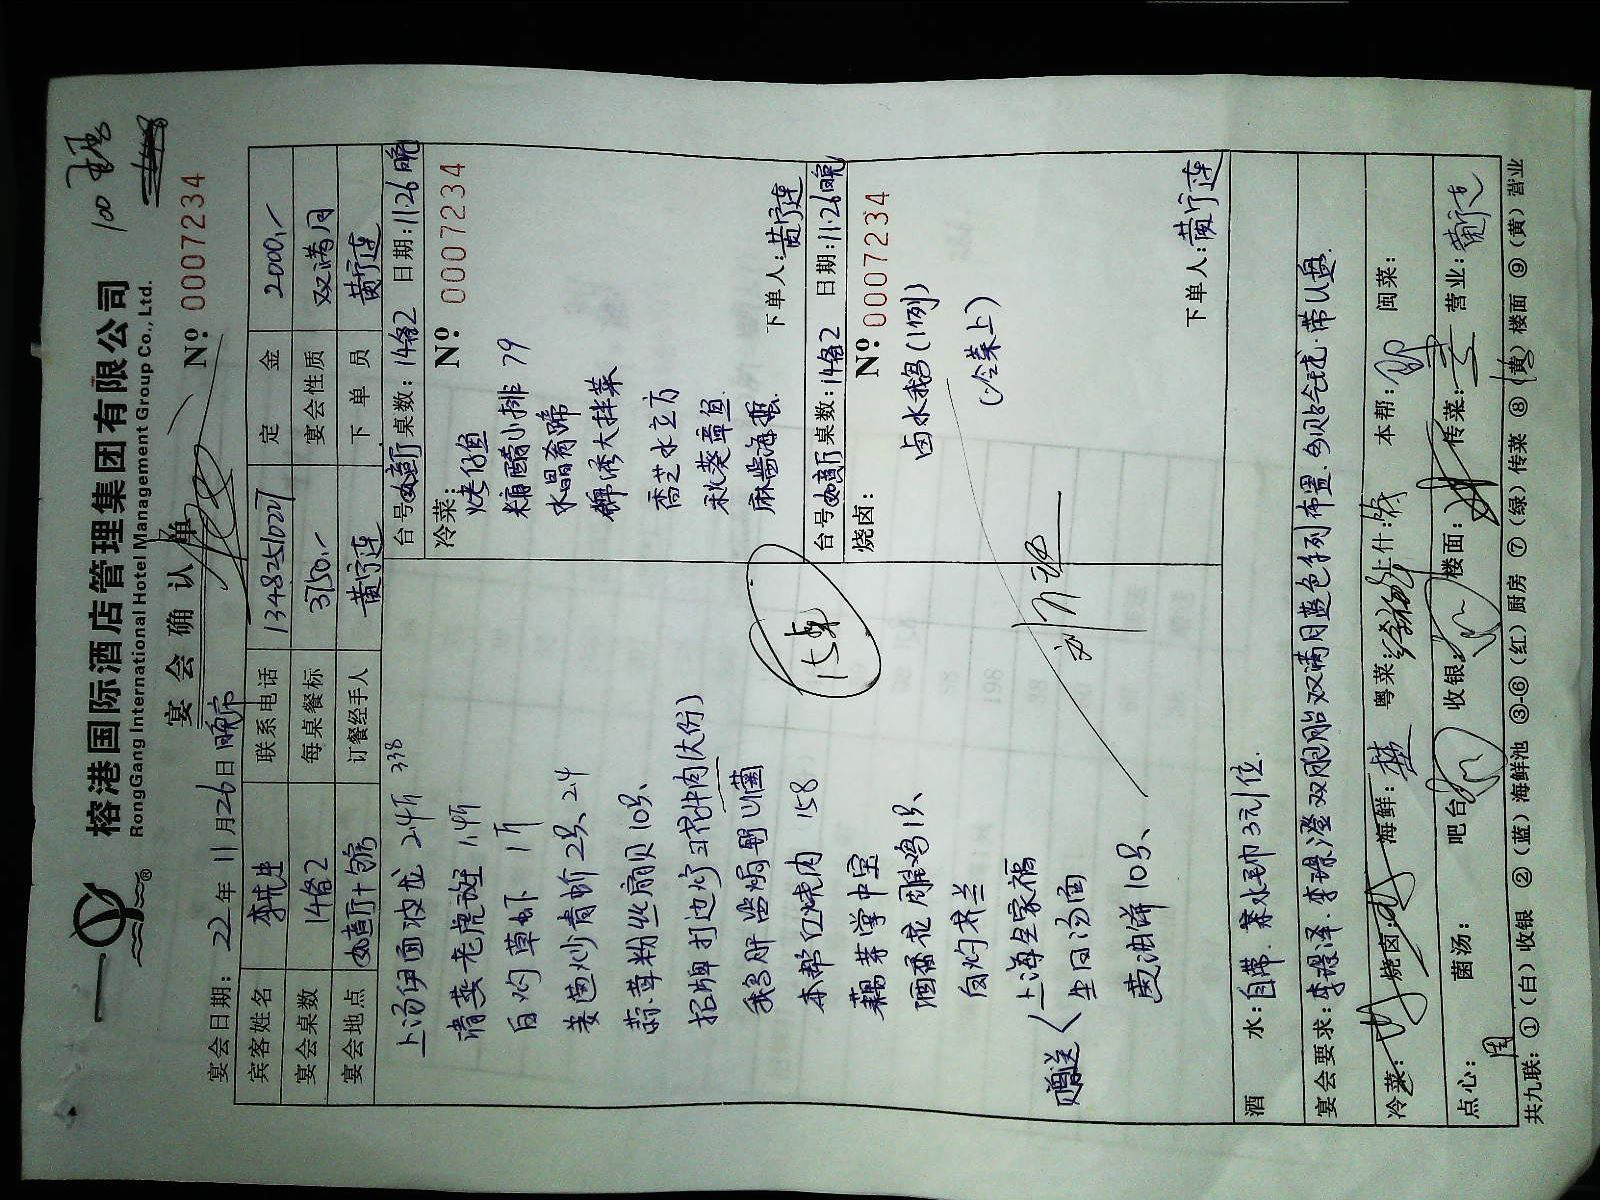 榕港国际酒店管理集团有限公司
RongGang International Hotel Management Group Co., Ltd.
宴会确认单
№ 0007234
宴会日期: 22年11月26日晚市
宾客姓名 李先生 联系电话 13482510227 定金 2000.-
宴会桌数 14备2 每桌餐标 3150.- 宴会性质 双满月
宴会地点 订餐经手人 黄宁连 下单员 黄宁连
上汤伊面波龙 2.4斤 338
清蒸老虎斑 1.4斤
白灼草虾 1斤
姜葱炒青蚧 2只、2.4
蒜茸粉丝扇贝 10只、
招牌打边炉 五花牛肉(大份)
本帮红烧肉 158
藕芽掌中宝
酒香花雕鸡 1只、
白灼芥兰
赠送
上海全家福
生日汤面
黄油饼 10只、
15桌
台号 桌数: 14备2 日期: 11.26晚
冷菜: № 0007234
烤仔鱼
糖醋小排 79
水晶肴蹄
锦绣大拌菜
香芝水立方
秋葵章鱼
麻酱海蜇
下单人: 黄宁连
台号 桌数: 14备2 日期: 11.26晚
烧卤: № 0007234
卤水鹅 (1例)
(冷菜上)
下单人: 黄宁连
酒水: 自带. 茶水毛巾3元/位.
宴会要求: 双胞胎双满月蓝色系列布置.
冷菜: 烧卤: 海鲜: 粤菜: 上什: 本帮: 闽菜:
点心: 周 菌汤: 吧台: 收银: 楼面: 传菜: 营业:
共九联: ①(白)收银 ②(蓝)海鲜池 ③-⑥(红)厨房 ⑦(绿)传菜 ⑧(黄)楼面 ⑨(黄)营业